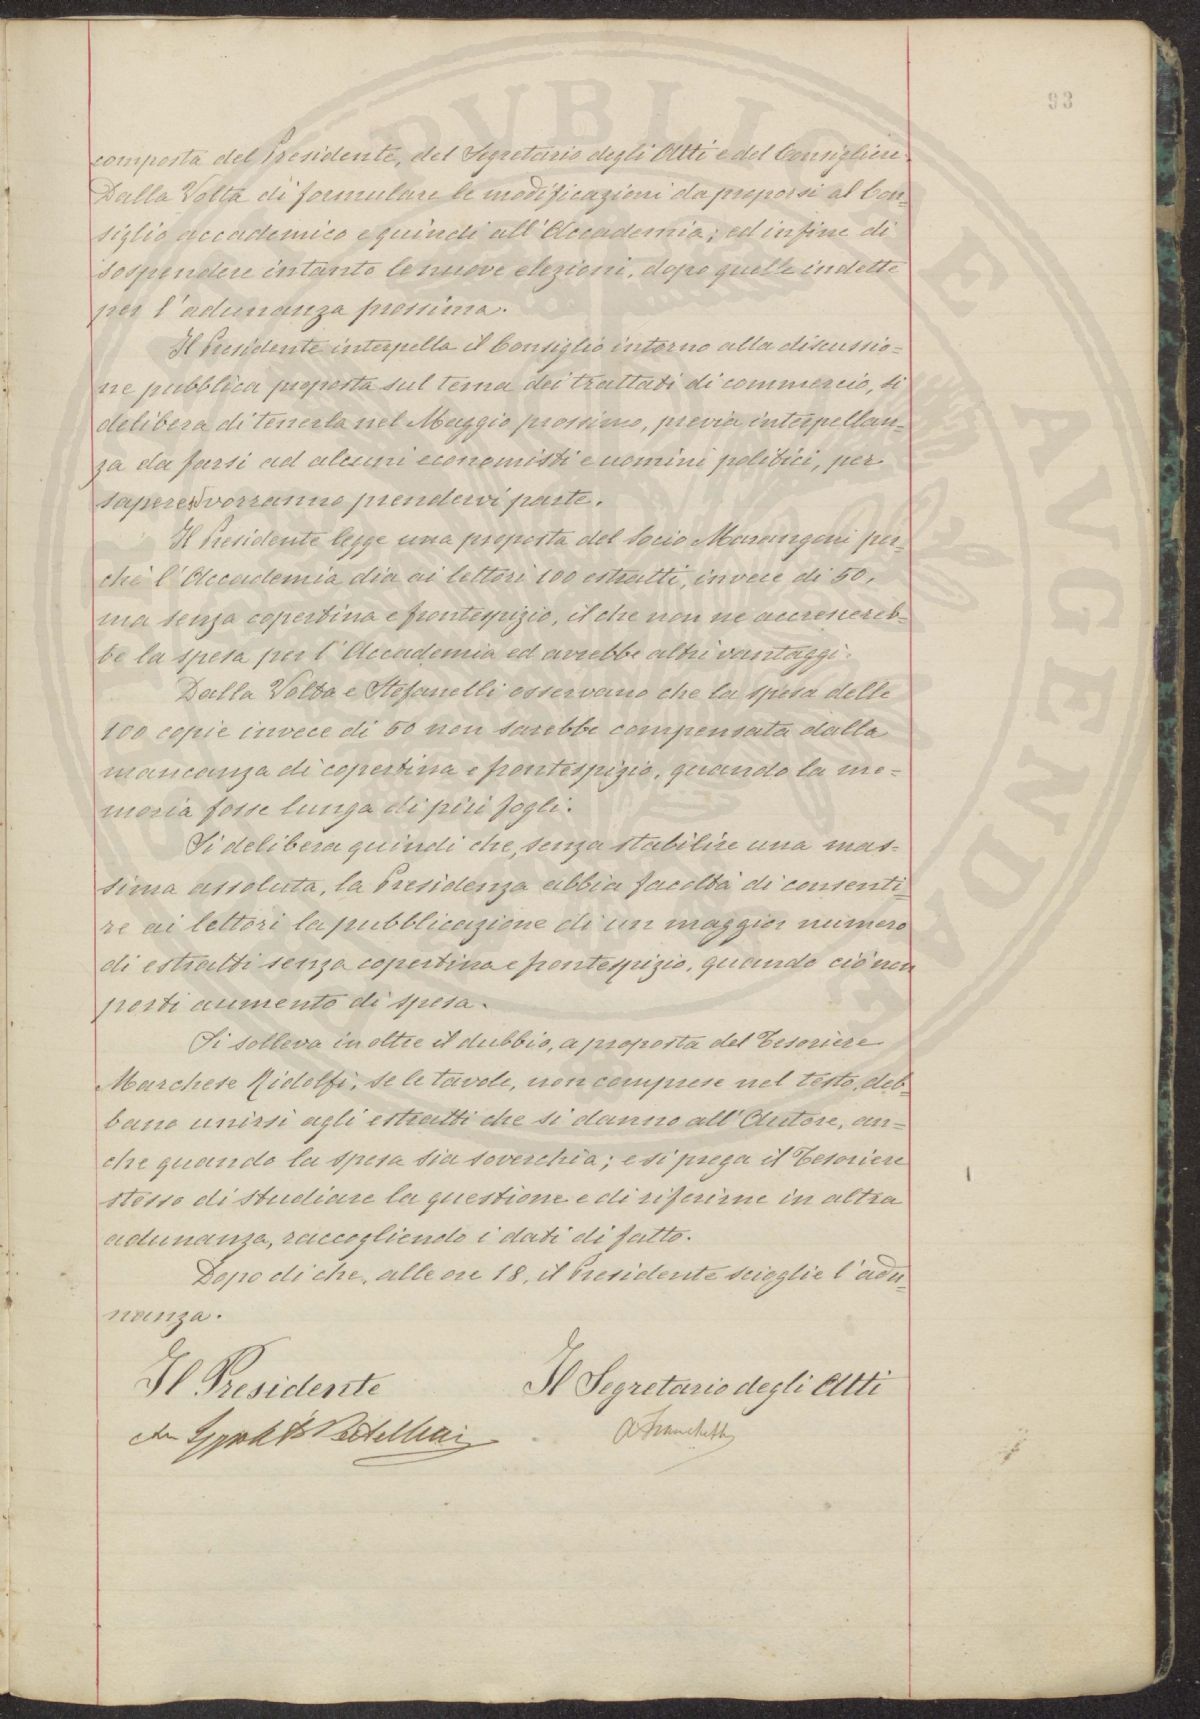 93
composta del Presidente, del Segretario degli Atti e del Consigliere
Dalla Volta di formulare le modificazioni da proporsi al Con=
siglio accademico e quindi all'Accademia; ed infine di
sospendere intanto le nuove elezioni, dopo quelle indette
per l'adunanza prossima.
Il Presidente interpella il Consiglio intorno alla discussio=
ne pubblica proposta sul tema dei trattati di commercio, si
delibera di tenerla nel Maggio prossimo, previa interpellan=
za da farsi ad alcuni economisti e uomini politici, per
sapere se vorranno prendervi parte.
Il Presidente legge una proposta del Socio Marangoni per=
chè l'Accademia dia ai lettori 100 estratti, invece di 50,
ma senza copertina e frontespizio, il che non ne accrescereb=
be la spesa per l'Accademia ed avrebbe altri vantaggi.
Dalla Volta e Stefanelli osservano che la spesa delle
100 copie invece di 50 non sarebbe compensata dalla
mancanza di copertina e frontespizio, quando la me=
moria fosse lunga di più fogli.
Si delibera quindi che, senza stabilire una mas=
sima assoluta, la Presidenza abbia facoltà di consenti=
re ai lettori la pubblicazione di un maggior numero
di estratti senza copertina e frontespizio, quando ciò non
porti aumento di spesa.
Si solleva inoltre il dubbio, a proposta del Tesoriere
Marchese Ridolfi, se le tavole, non comprese nel testo, deb=
bano unirsi agli estratti che si danno all'Autore, an=
che quando la spesa sia soverchia; e si prega il Tesoriere
stesso di studiare la questione e di riferirne in altra
adunanza, raccogliendo i dati di fatto.
Dopo di che, alle ore 18, il Presidente scioglie l'adu=
nanza.
Il Presidente Il Segretario degli Atti
A Franchetti
PVBLICAE AVGENDAE